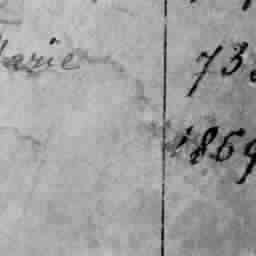 Marie 73
1869